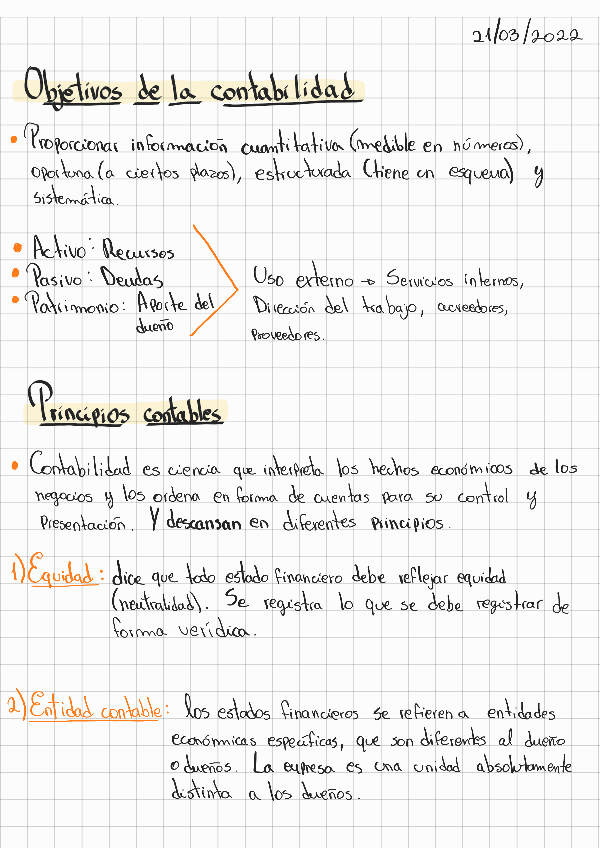 21/03/2022
Objetivos de la contabilidad
• Proporcionar información cuantitativa (medible en números),
oportuna (a ciertos plazos), estructurada (tiene un esquema) y
sistemática.
• Activo: Recursos
• Pasivo: Deudas
• Patrimonio: Aporte del
dueño
Uso externo → Servicios internos,
Dirección del trabajo, acreedores,
Proveedores.
Principios contables
• Contabilidad es ciencia que interpreta los hechos económicos de los
negocios y los ordena en forma de cuentas para su control y
Presentación. Y descansan en diferentes principios.
1) Equidad: dice que todo estado financiero debe reflejar equidad
(neutralidad). Se registra lo que se debe registrar de
forma verídica.
2) Entidad contable: los estados financieros se refieren a entidades
económicas específicas, que son diferentes al dueño
o dueños. La empresa es una unidad absolutamente
distinta a los dueños.